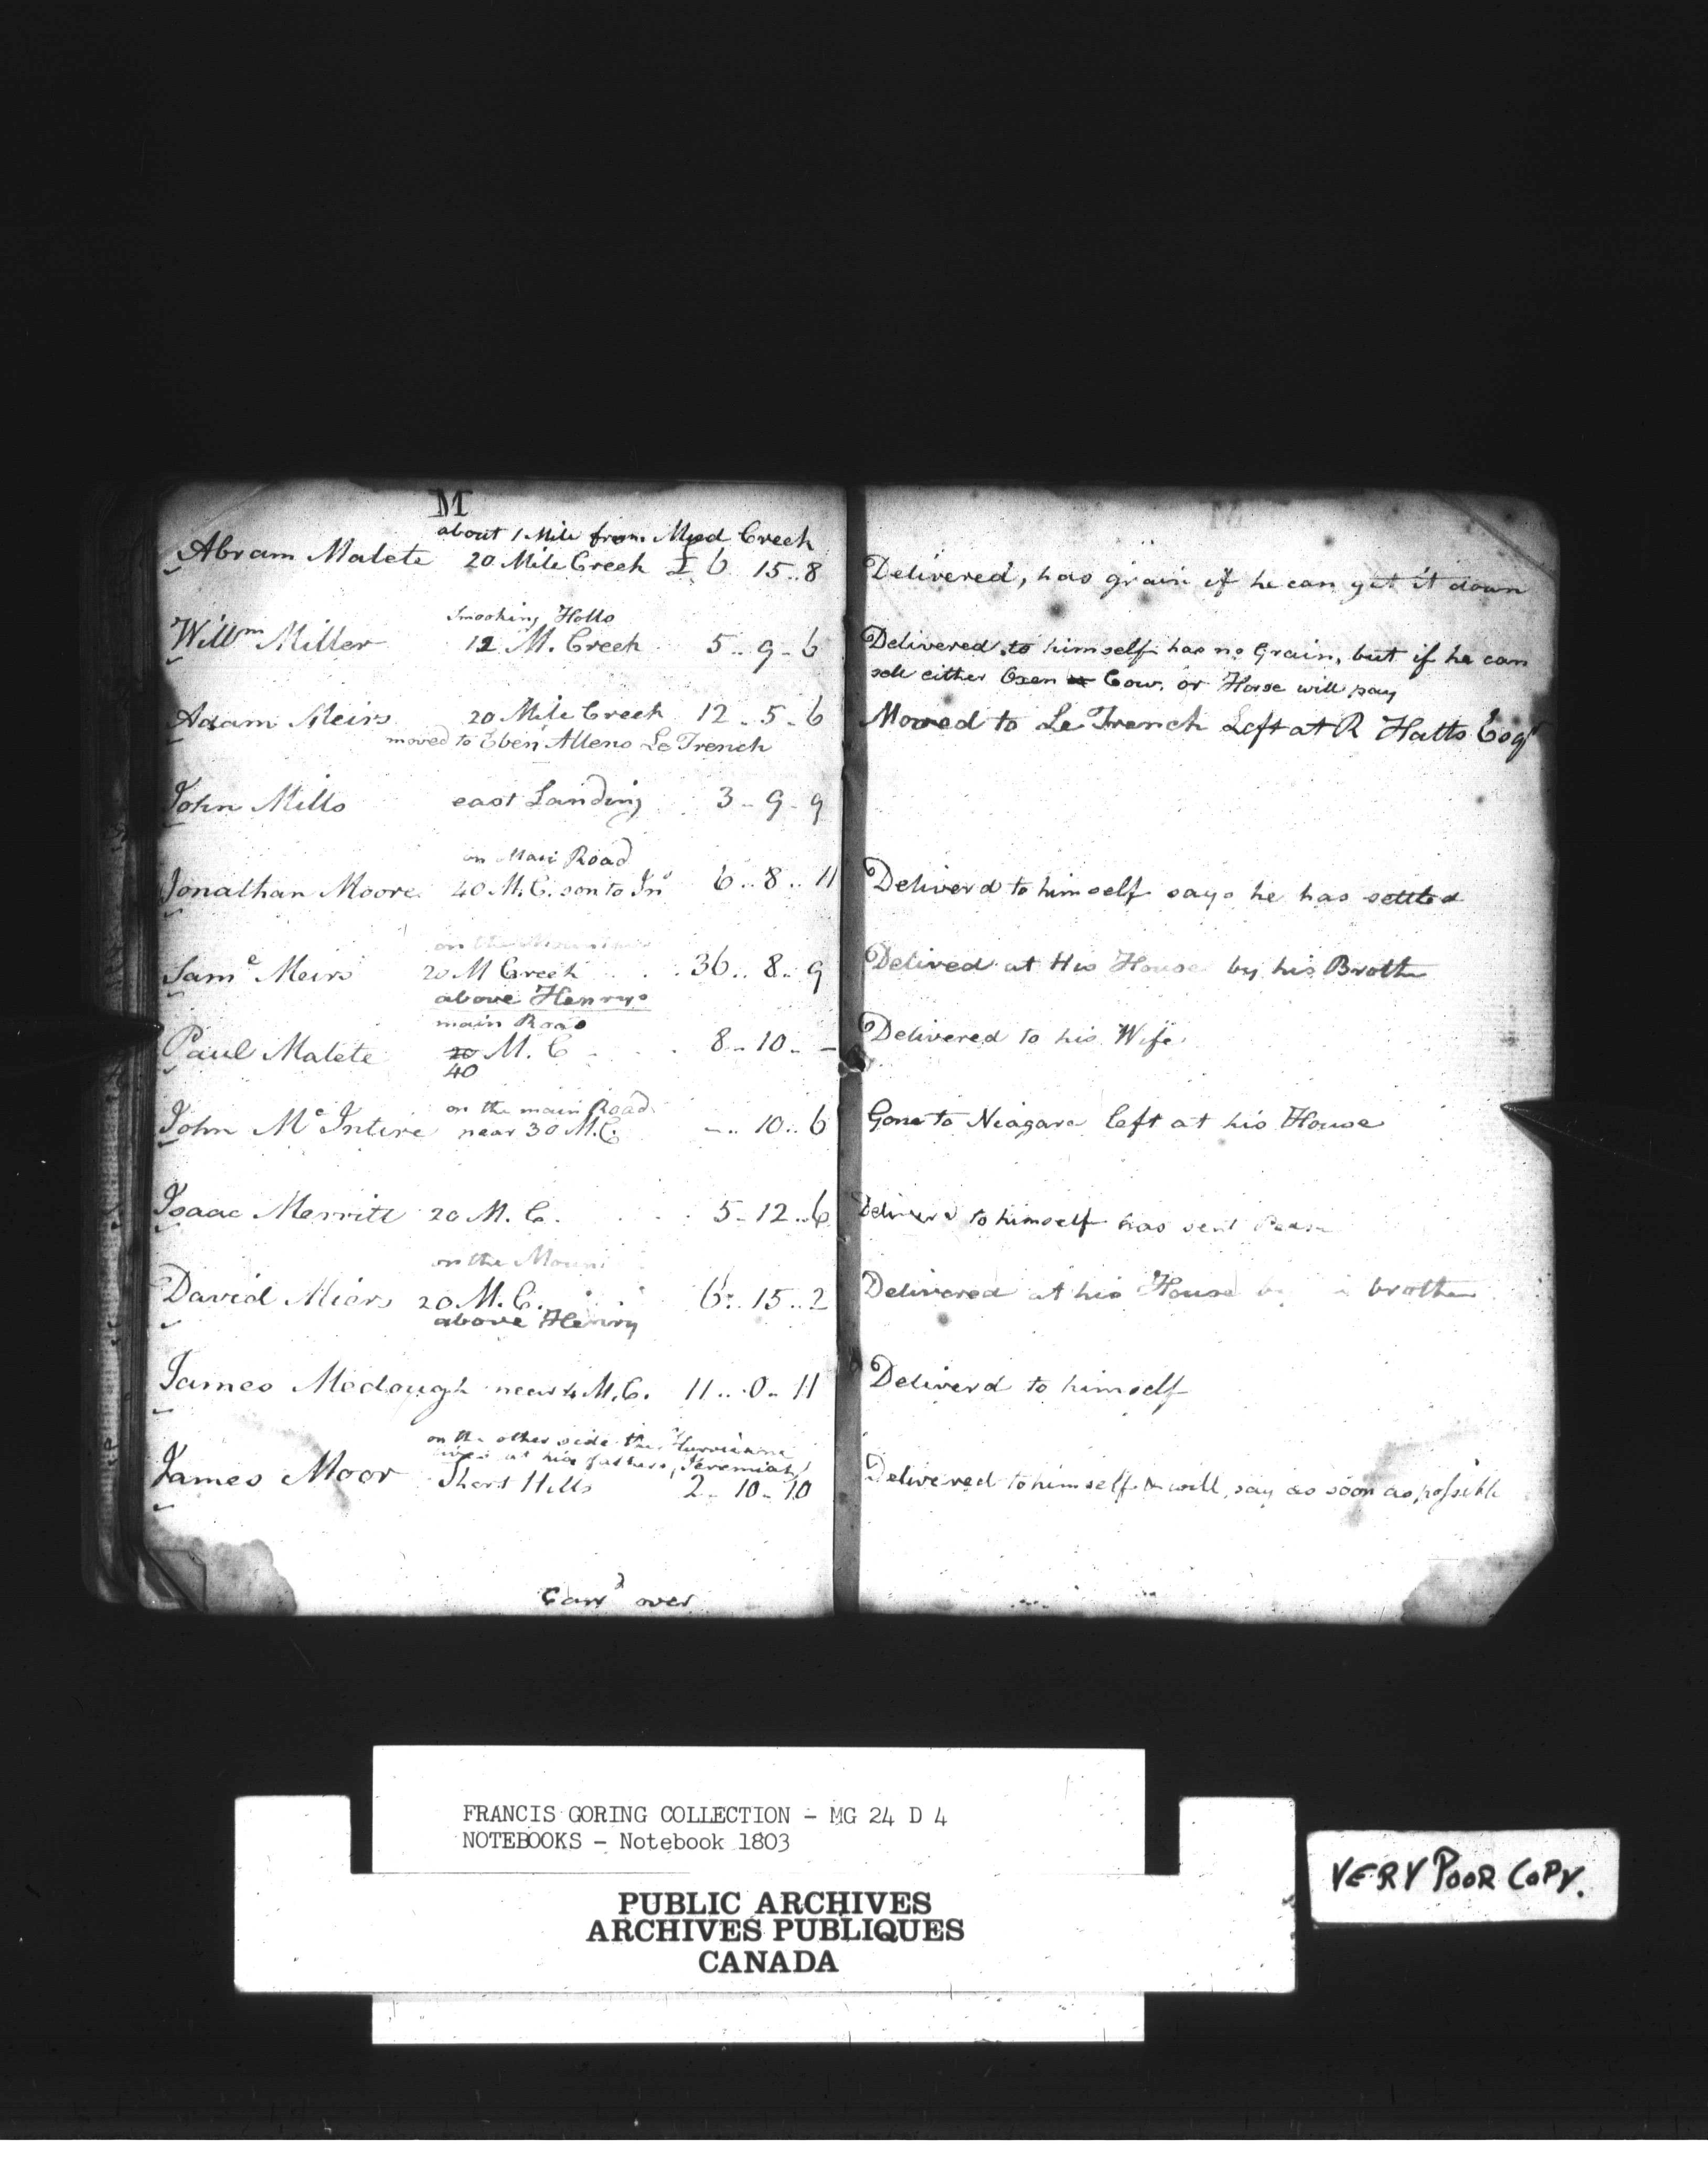 M
about 1 Mile from Mud Creek
Abram Malete 20 Mile Creek £ 6 15..8
Delivered, has grain if he can get it down
Smoking Hollo
Willm Miller 12 M. Creek 5..9-6
Delivered to himself has no Grain, but if he can
sell either Oxen Cow, or Horse will pay
Adam Meirs 20 Mile Creek 12..5-6
moved to Eben Allens Le Trench
Moved to Le Trench Left at R Hatts Esqr
John Mills east Landing 3-9-9
on Main Road
Jonathan Moore 40 M.C. son to Jno 6..8..11
Deliverd to himself says he has settled
on the Mountain
Saml Meirs 20 M Creek 36..8..9
above Henrys
Delived at His House by his Brother
main Road
Paul Malete 20 M. C 8-10-—
40
Delivered to his Wife
on the main Road
John McIntire near 30 M.C. -..10..6
Gone to Niagara left at his House
Isaac Merritt 20 M. C. 5-12..6
Deliverd to himself has sent
on the Moun
David Miers 20 M. C. 6..15..2
above Henry
Delivered at his House brother
James Mcdough near 4 M.C. 11..0-11
Deliverd to himself
on the other side the
at his fathers, Jeremiah
James Moor Short Hills 2-10-10
Delivered to himself & will pay as soon as possible
Carrd over
FRANCIS GORING COLLECTION - MG 24 D 4
NOTEBOOKS - Notebook 1803
PUBLIC ARCHIVES
ARCHIVES PUBLIQUES
CANADA
VERY POOR COPY.